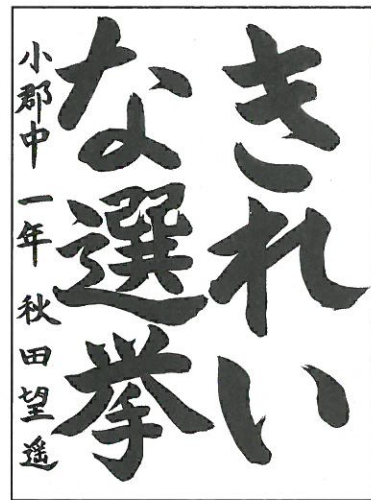 きれい
な選挙
小郡中 一年 秋田望遥